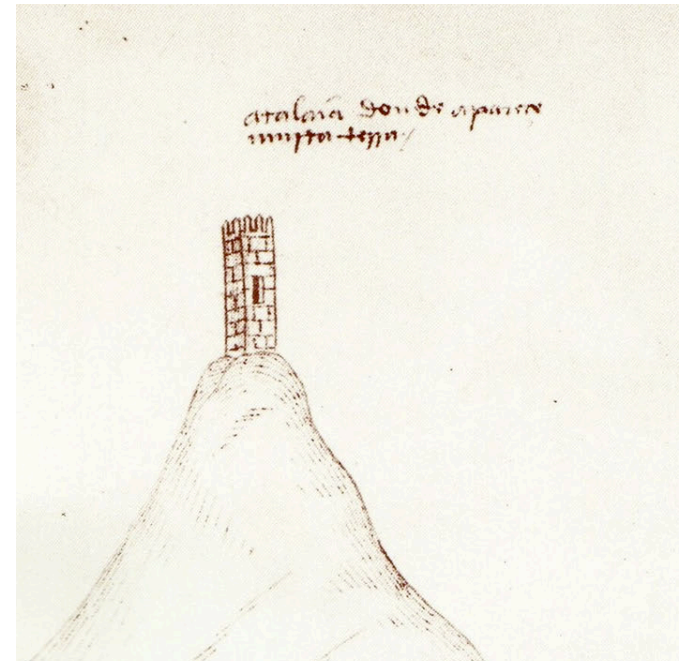 atalaia donde aparece
muita terra